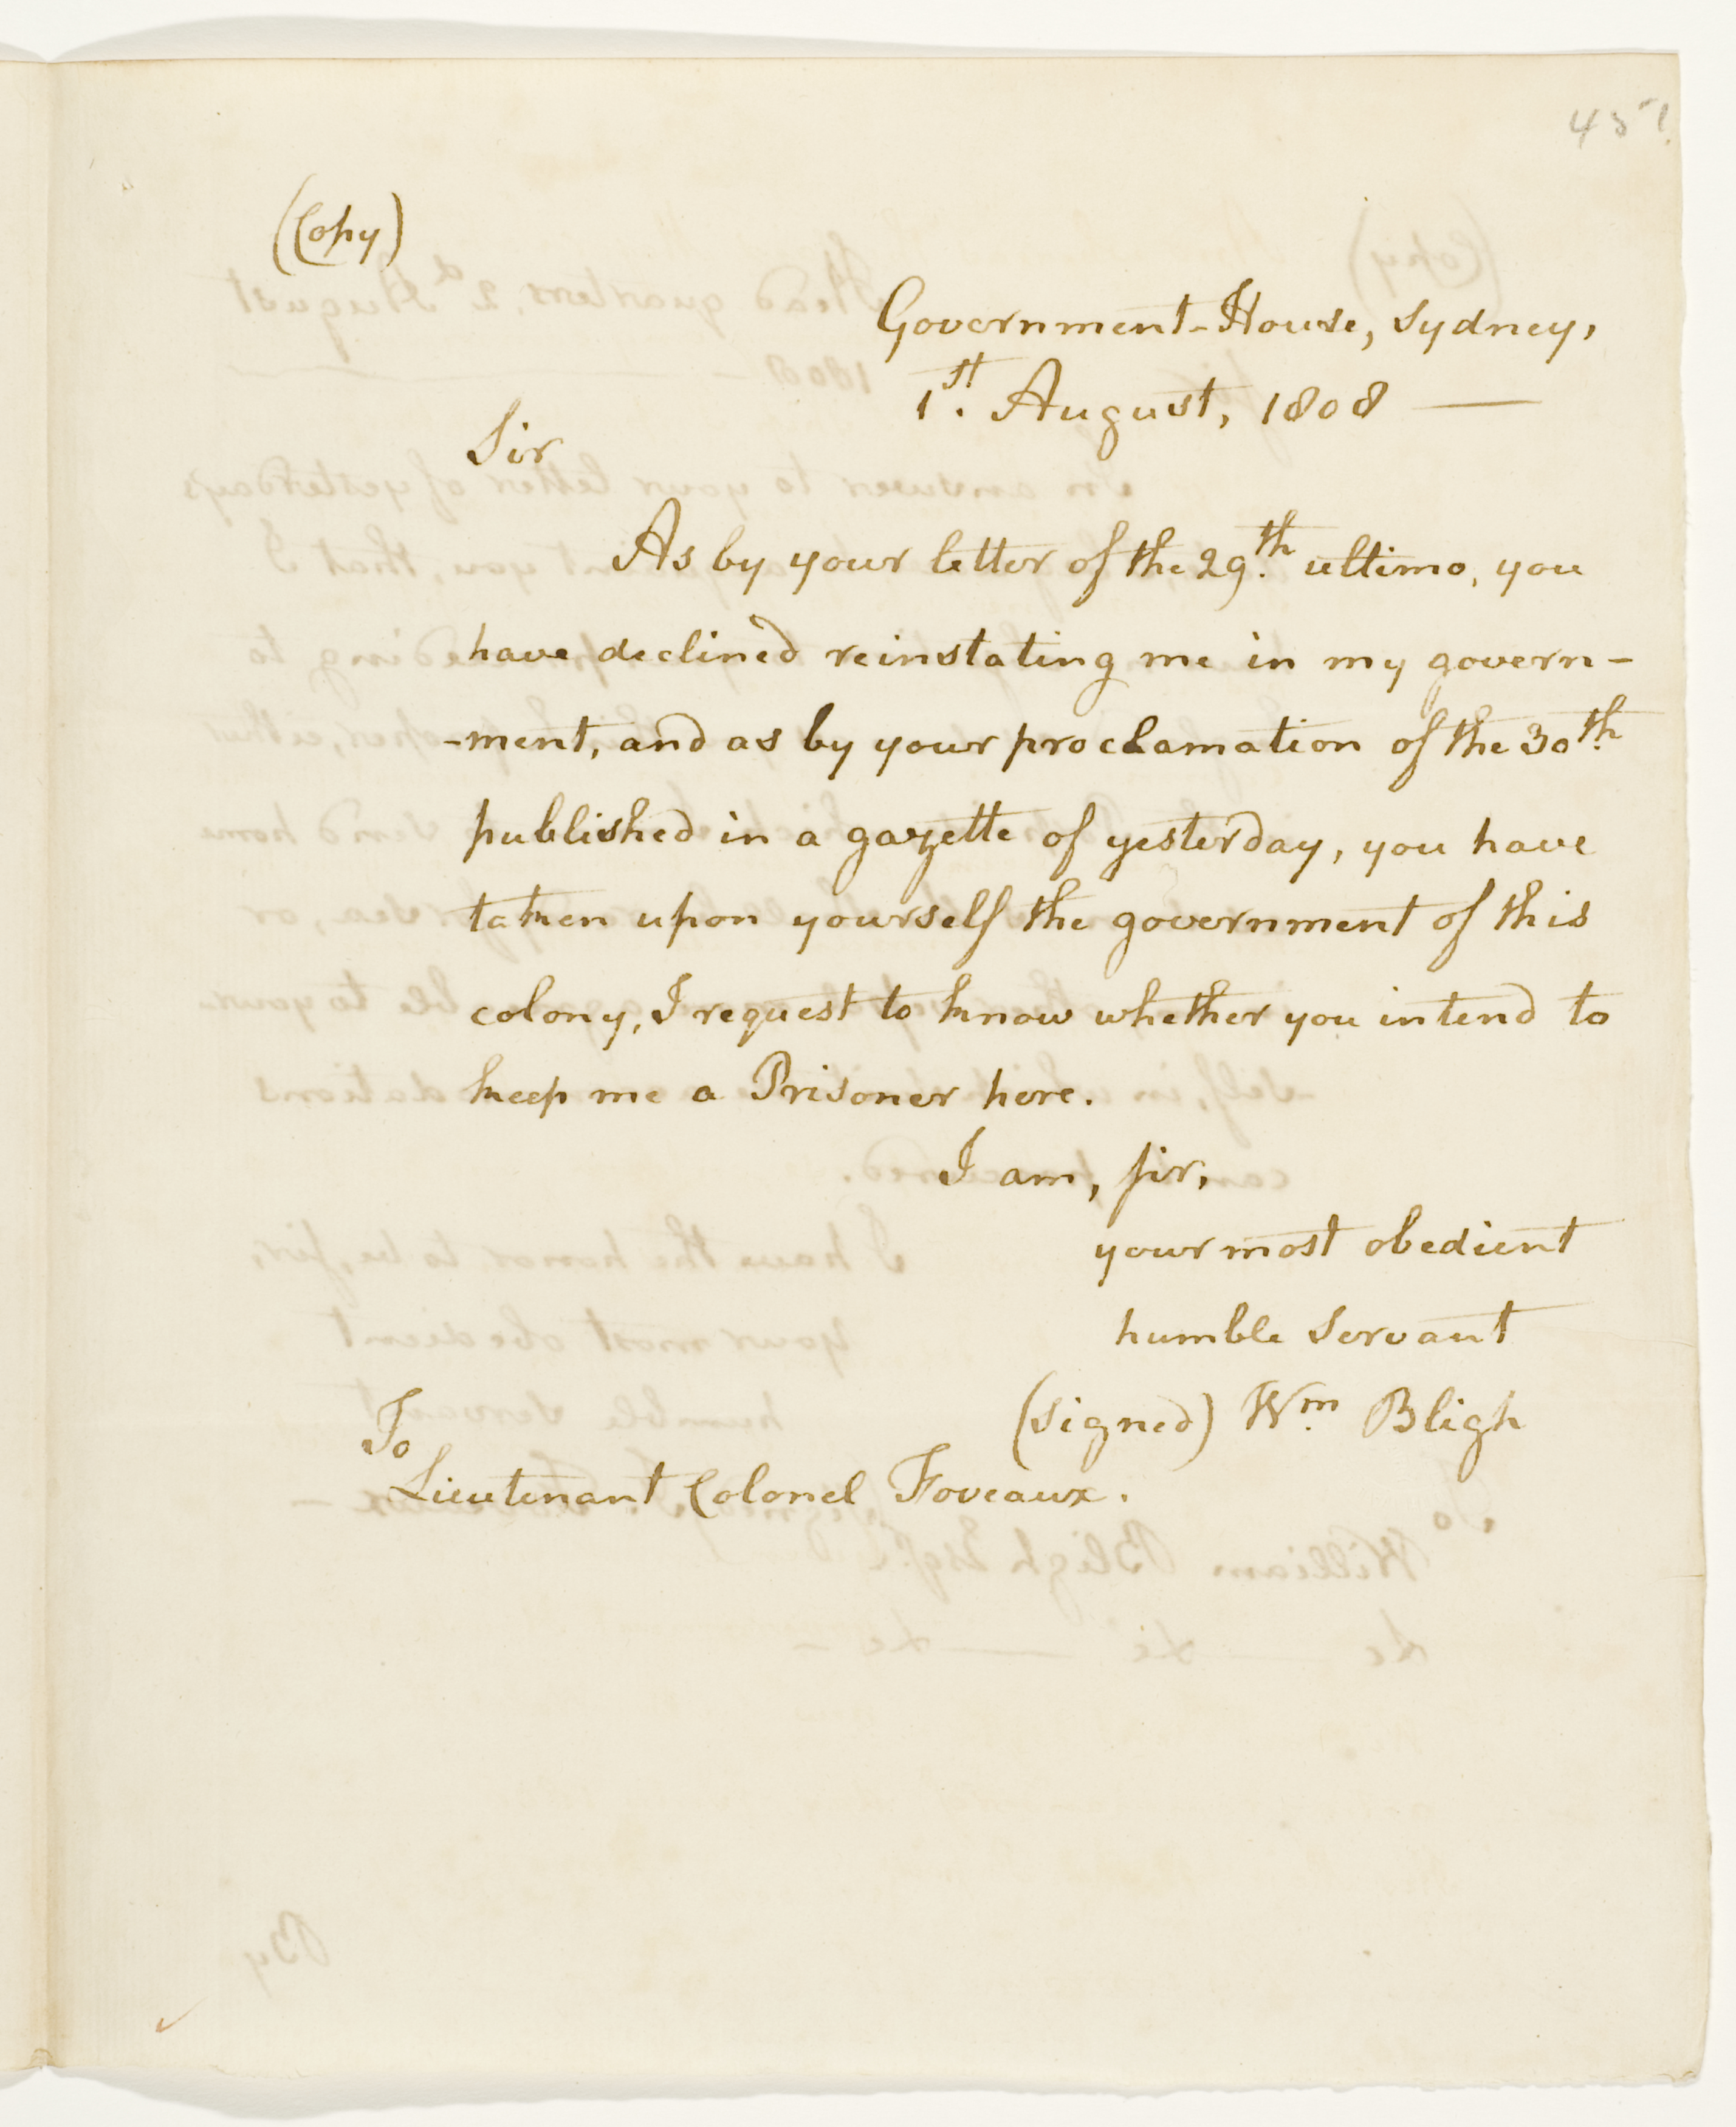 451
(Copy)
Government-House, Sydney,
1st. August, 1808 —
Sir
As by your letter of the 29th. ultimo, you
have declined reinstating me in my govern-
-ment, and as by your proclamation of the 30th.
published in a gazette of yesterday, you have
taken upon yourself the government of this
colony, I request to know whether you intend to
keep me a Prisoner here.
I am, sir,
your most obedient
humble servant
(signed) Wm. Bligh
To
Lieutenant Colonel Foveaux.